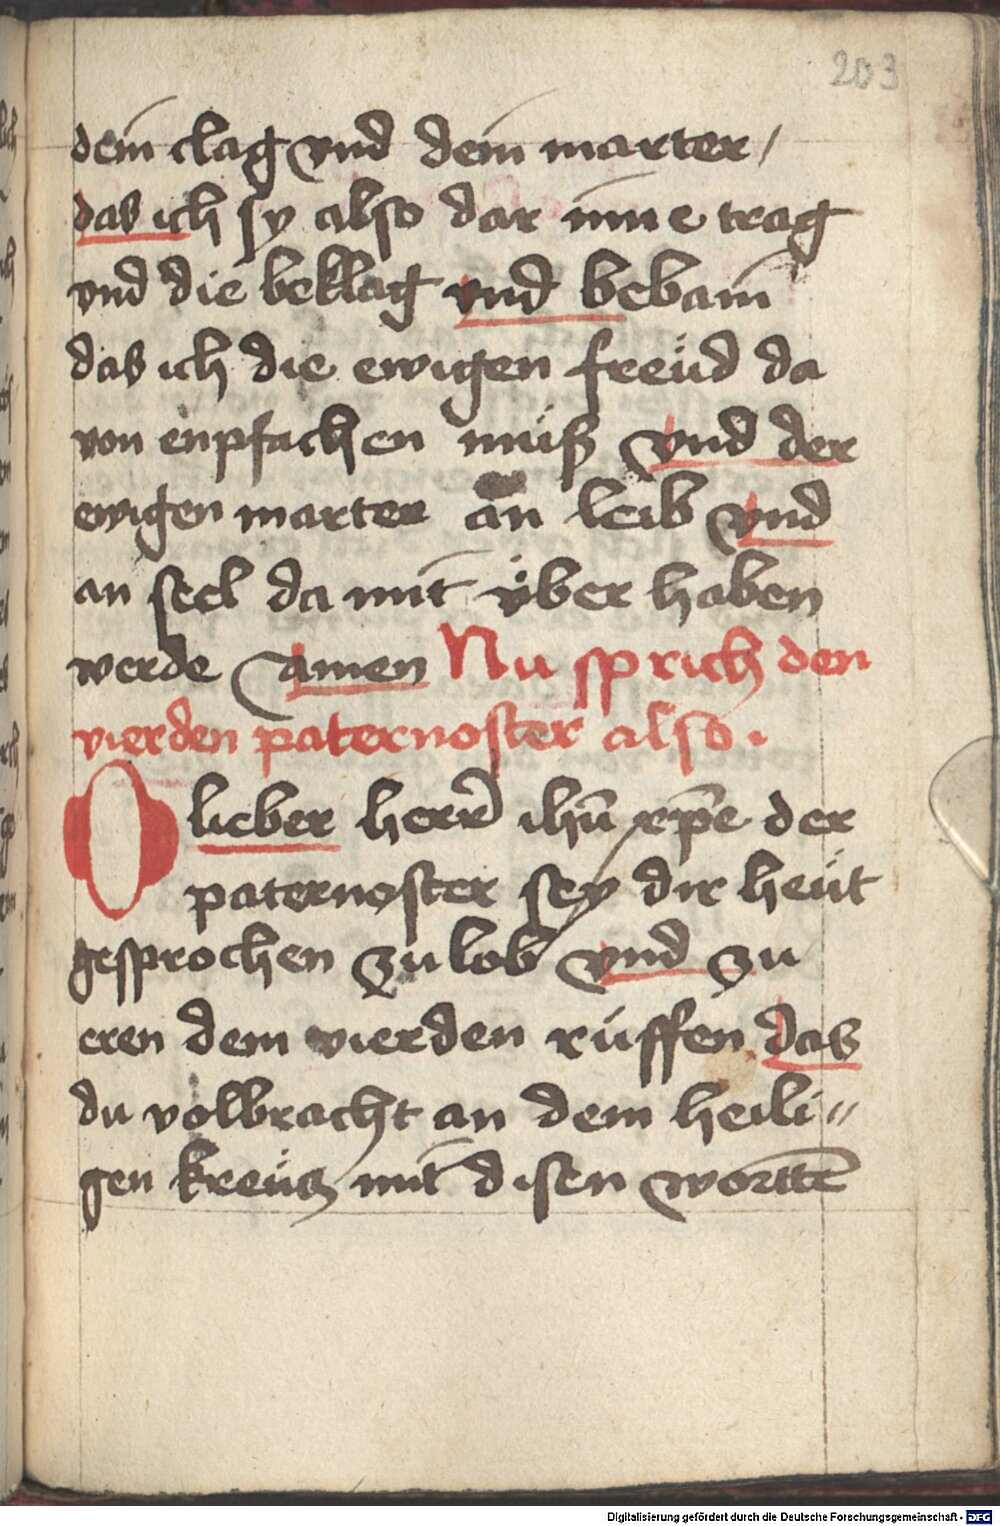 203
dein clag vnd dein marter /
das ich sy also dar inne trag
vnd die beklag vnd bebain
das ich die ewigen freüd da
von enpfachen müß vnd der
ewigen marter an leib vnd
an seel da mit über haben
werde amen Nu sprich den
vierden paternoster also .
O lieber herr ihū xp̄e der
paternoster sey dir heüt
gesprochen zu lob vnd zu
eren dem vierden rüffen das
du volbracht an dem heili〃
gen kreücz mit disen wortē
Digitalisierung gefördert durch die Deutsche Forschungsgemeinschaft - DFG